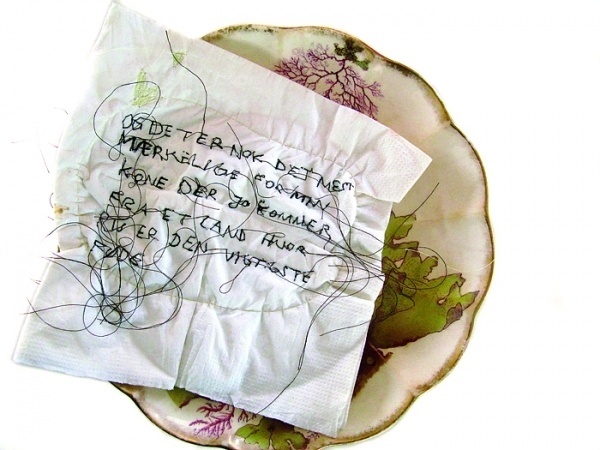 OG DET ER NOK DET MEST
MÆRKELIGE FOR MIN
KONE DER JO KOMMER
FRA ET LAND HVOR
RIS ER DEN VIGTIGSTE
FØDE